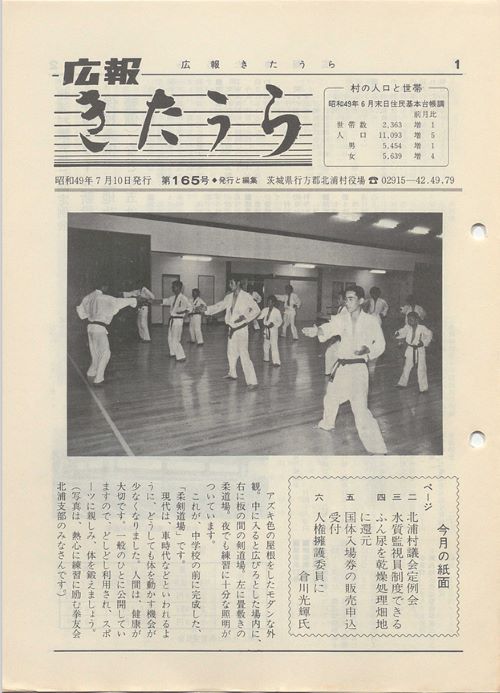 広報きたうら
1
広報
きたうら
村の人口と世帯
昭和49年6月末日住民基本台帳調
前月比
世帯数 2,363 増 1
人口 11,093 増 5
男 5,454 増 1
女 5,639 増 4
昭和49年7月10日発行 第165号◆発行と編集 茨城県行方郡北浦村役場☎02915―42.49.79
今月の紙面
ページ
二 北浦村議会定例会
三 水質監視員制度できる
四 ふん尿を乾燥処理畑地
に還元
五 国体入場券の販売申込
受付
六 人権擁護委員に
倉川光輝氏
アズキ色の屋根をしたモダンな外
観。中に入ると広びろとした場内に、
右に板の間の剣道場、左に畳敷きの
柔道場。夜でも練習に十分な照明が
ついています。
これが、中学校の前に完成した、
「柔剣道場」です。
現代は、車時代などといわれるよ
うに、どうしても体を動かす機会が
少なくなりました。人間は、健康が
大切です。一般のひとに公開してい
ますので、どしどし利用され、スポ
ーツに親しみ、体を鍛えましょう。
(写真は、熱心に練習に励む拳友会
北浦支部のみなさんです。)